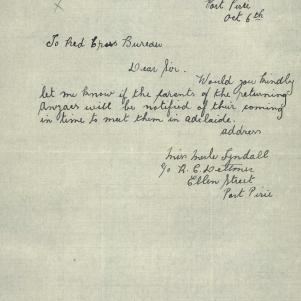 Port Pirie
Oct 6th
To Red Cross Bureau
Dear Sir.
Would you kindly
let me know if the parents of the returning
Anzacs will be notified of their coming
in time to meet them in adelaide.
address
Miss Merle Tyndall
c/o A. E. Dettmer
Ellen Street
Port Pirie